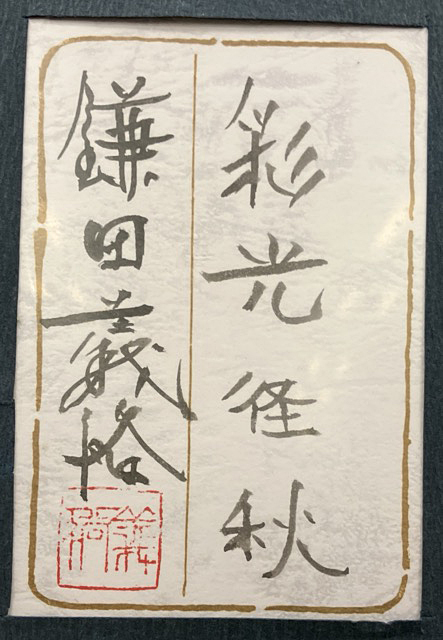 彩光径秋
鎌田義裕